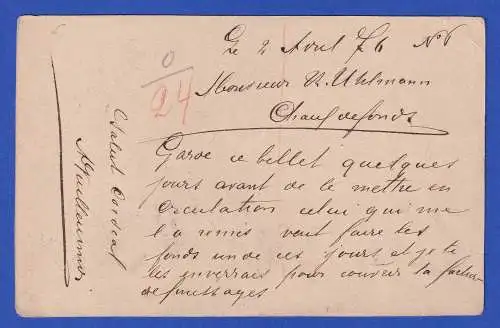 Le 2 Avril 76 N° 6
0
24
Monsieur R. Uhlmann
Chaux de fonds
Garde ce billet quelques
jours avant de le mettre en
circulation celui qui me
l'a remis veut faire les
fonds un de ces jours et je te
les enverrais pour couvrir ta
de
Salut Cordial